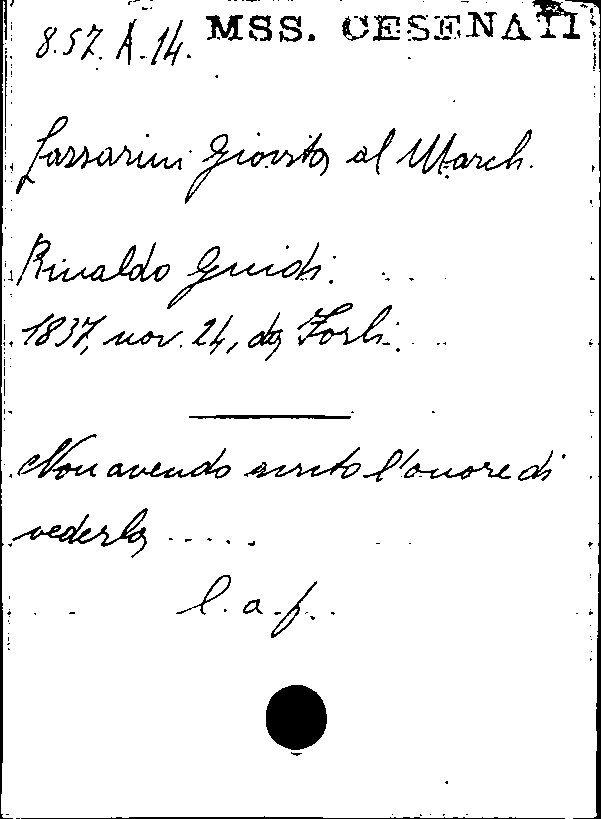 8.57.A.14. MSS. CESENATI
Lazzarini Giovita al March.
Rinaldo Guidi.
1837, nov. 24, da Forlì.
Non avendo avuto l'onore di
vederla .....
l. a. f.